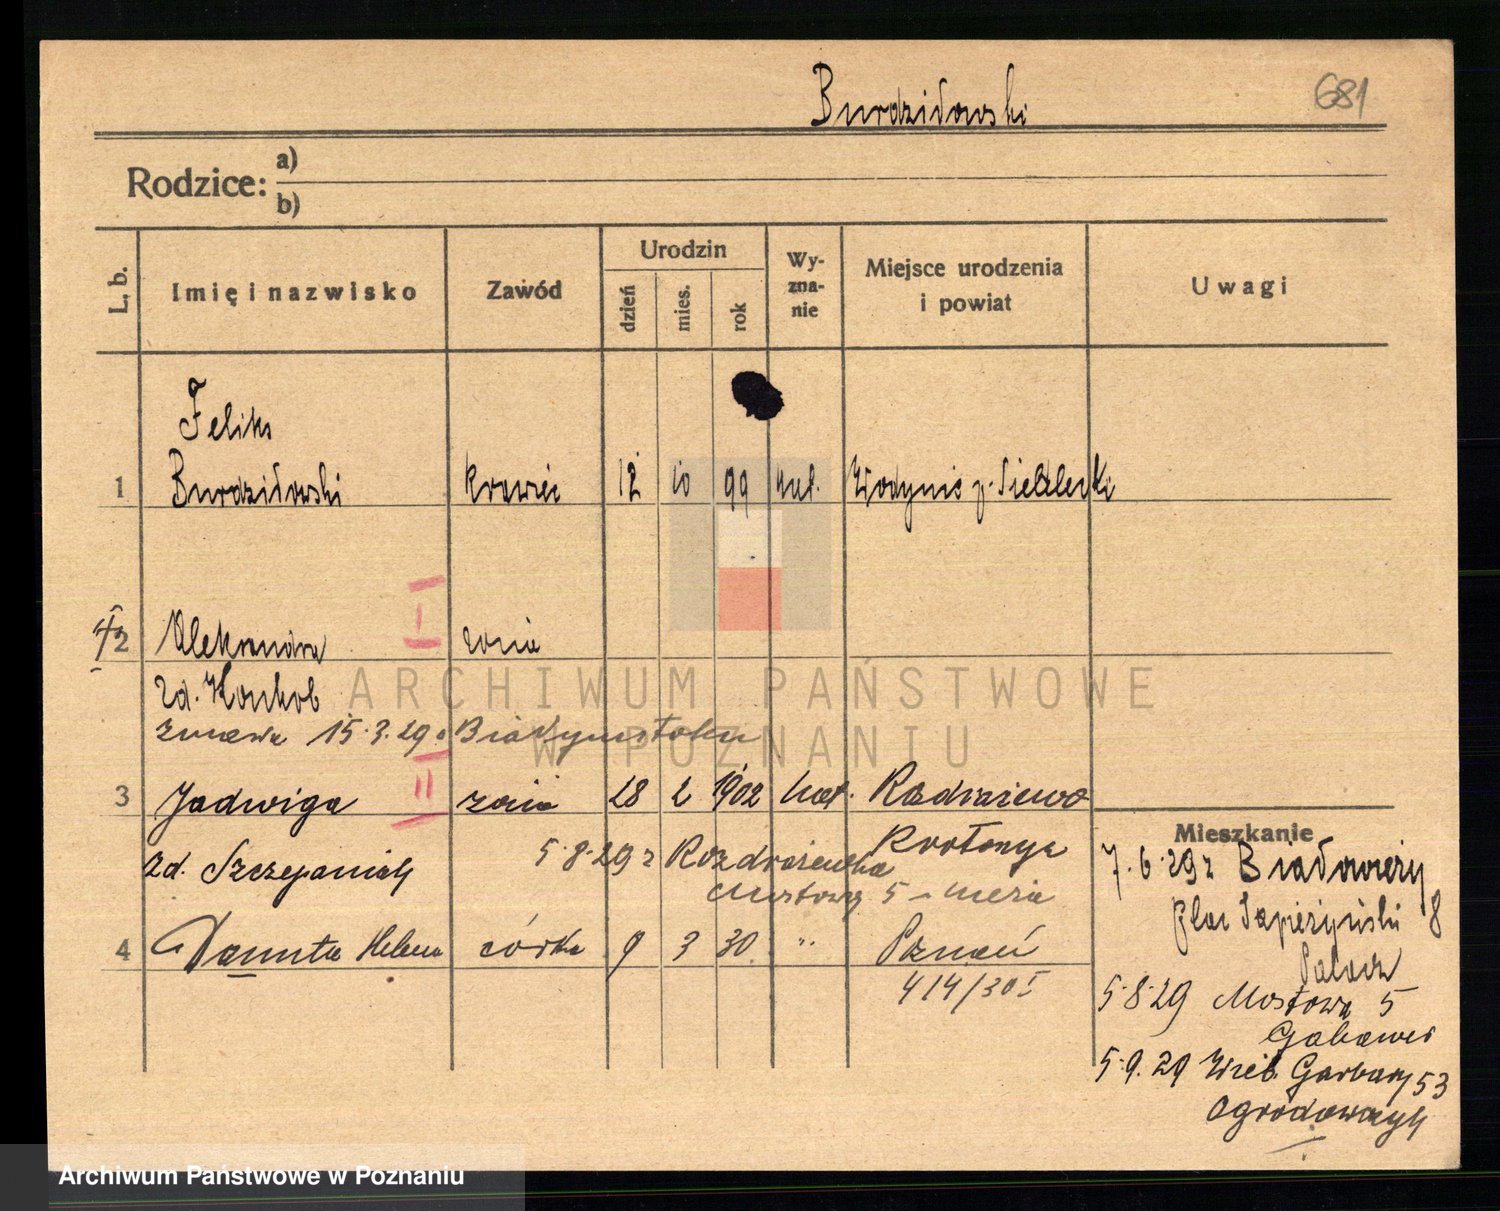 Burdziłowski
681
Rodzice: a)
b)
L. b.
Imię i nazwisko
Zawód
Urodzin
dzień
mies.
rok
Wy-
zna-
nie
Miejsce urodzenia
i powiat
Uwagi
Feliks
1 Burdziłowski krawiec 12 10 99 kat. Wodynie p. Siedlecki
I
2 Aleksandra żona
zd.
zmarła 15.3.29 Białymstoku
II
3 Jadwiga żona 28 2 1902 kat. Rozdrażewo
Krotoszyn
zd. Szczepaniak 5.8.29 z Rozdrażewka
Mostowa 5 – męża
4 Danuta Helena córka 9 3 30 " Poznań
414/30 I
Mieszkanie
7.6.29 z Białowieży
plac Sapieżyński 8
5.8.29 Mostowa 5
5.9.29 Wielk. Garbary 53
Ogrodowczyk
ARCHIWUM PAŃSTWOWE
W POZNANIU
Archiwum Państwowe w Poznaniu